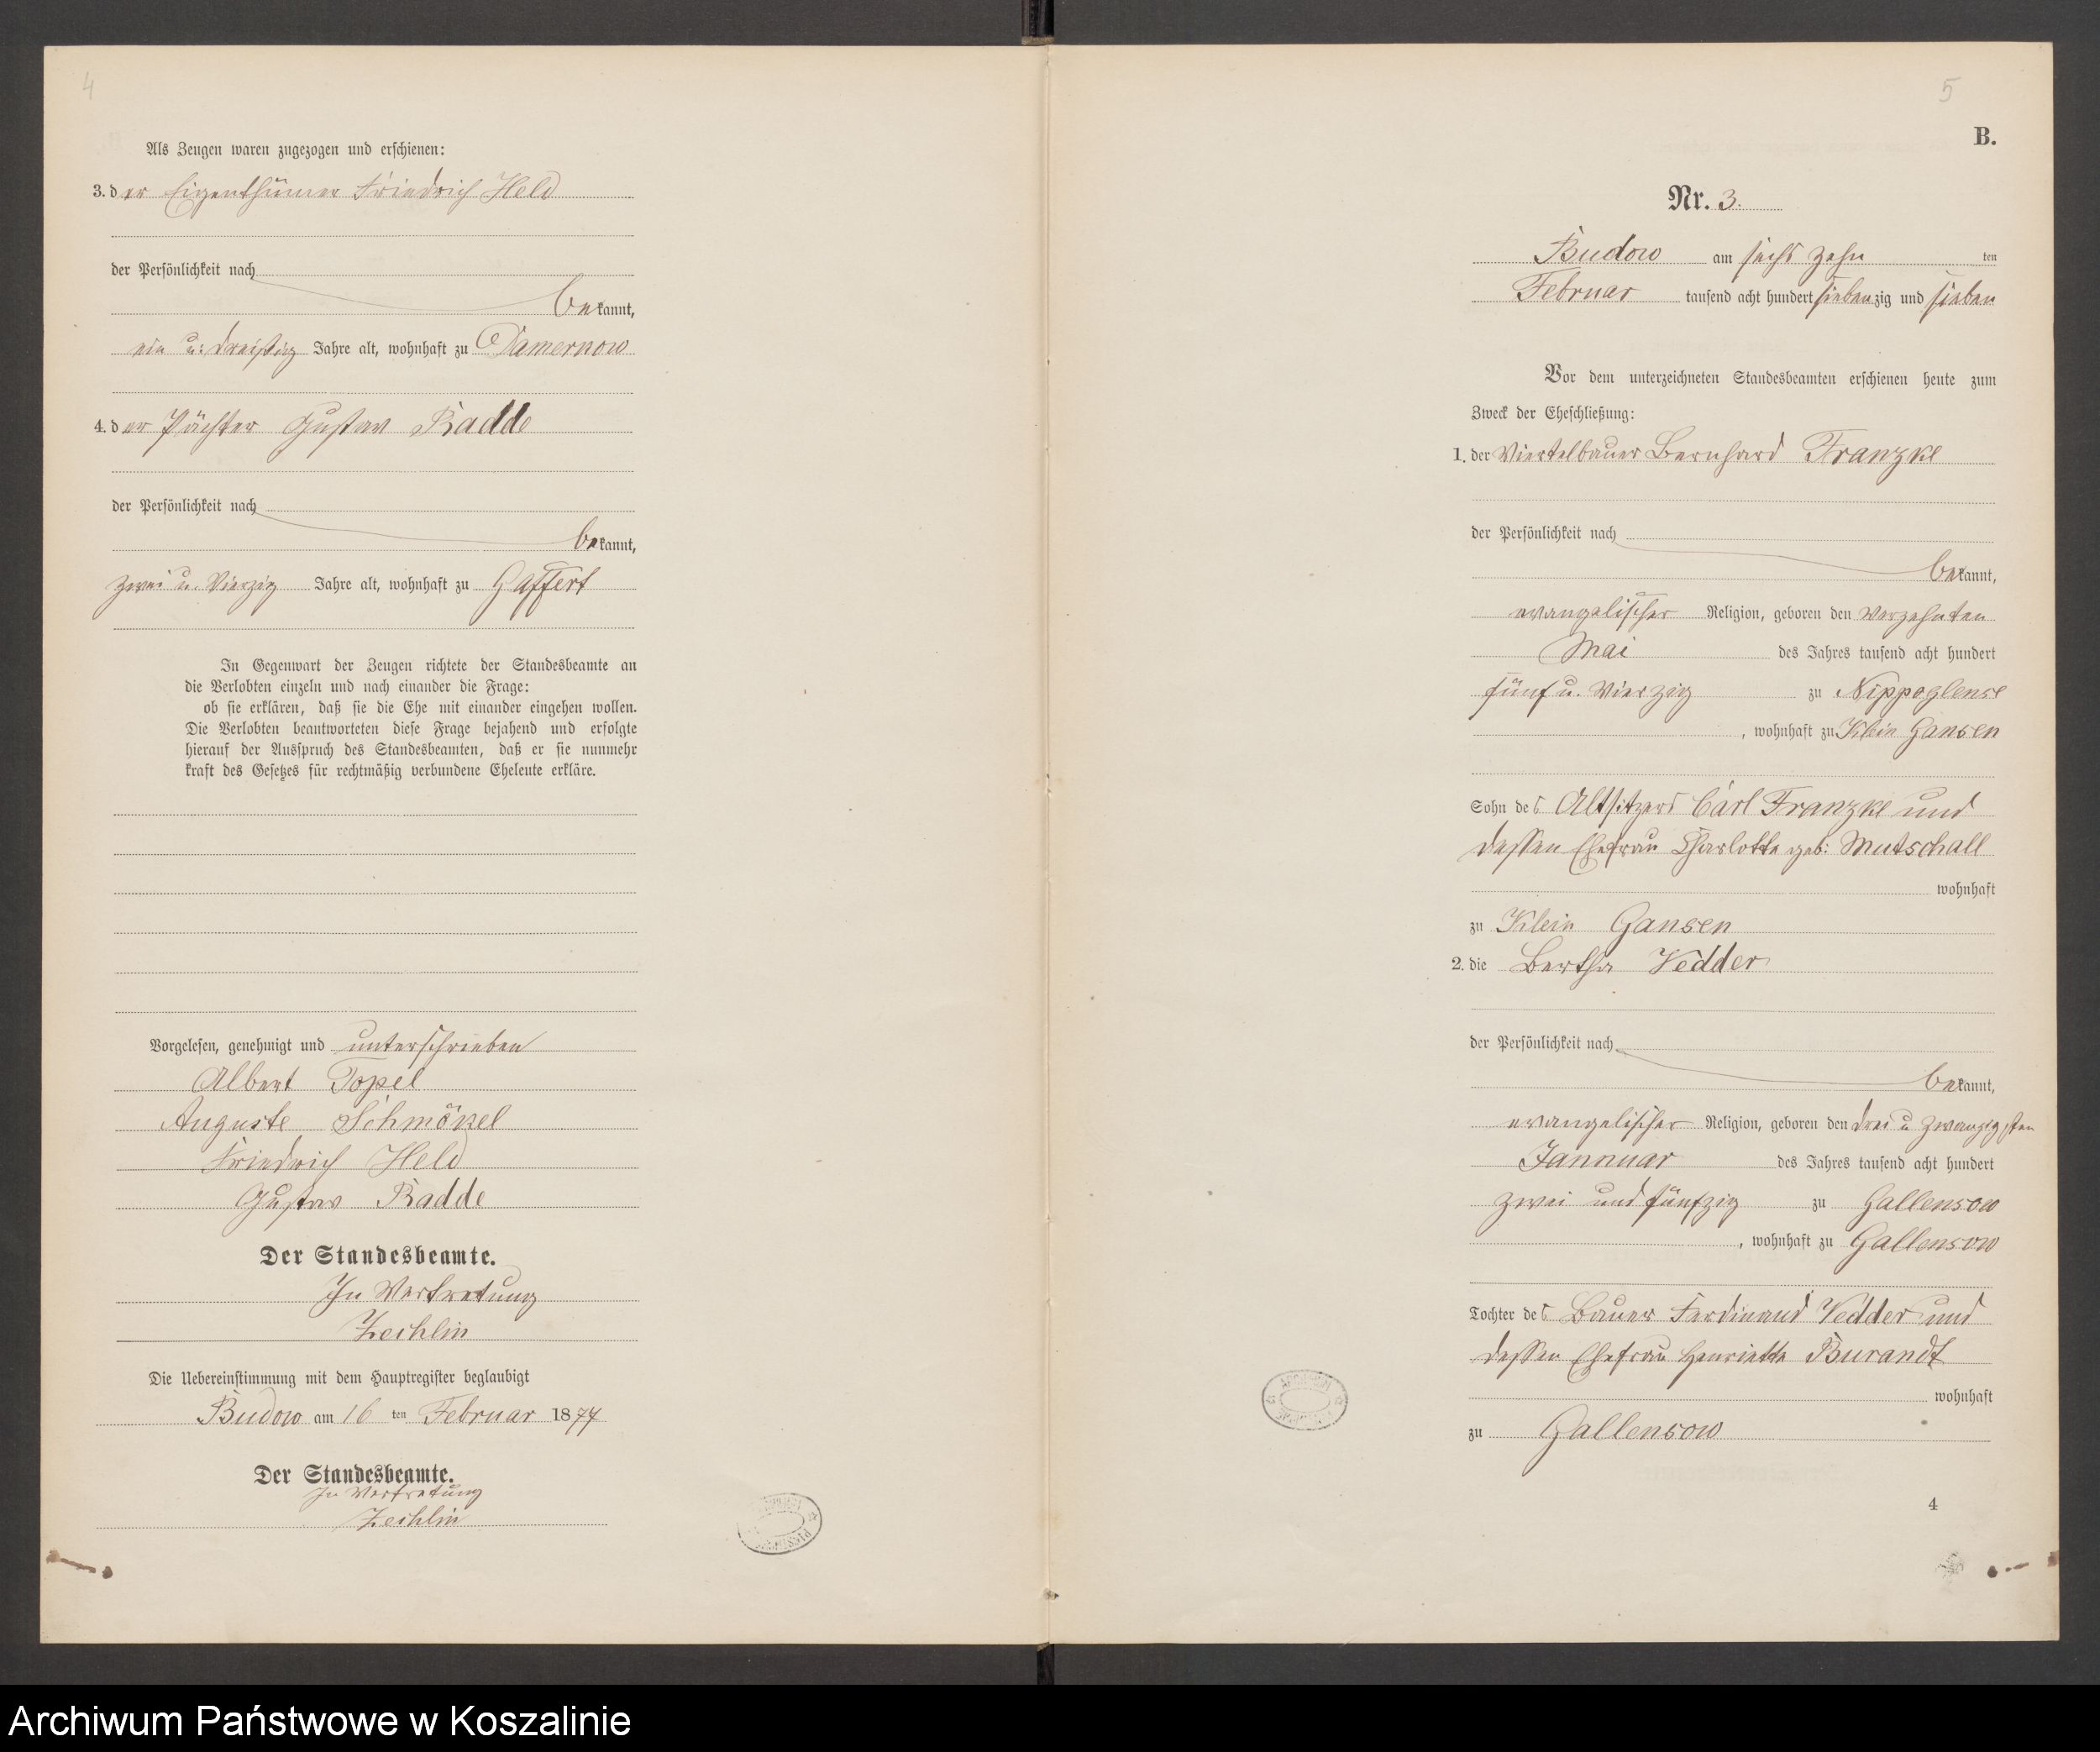 4
Als Zeugen waren zugezogen und erschienen:
3. der Eigenthümer Friedrich Held
der Persönlichkeit nach
bekannt,
ein u: dreißig Jahre alt, wohnhaft zu Damernow
4. der Pächter Gustav Radde
der Persönlichkeit nach
bekannt,
zwei u. Vierzig Jahre alt, wohnhaft zu Gaffert
In Gegenwart der Zeugen richtete der Standesbeamte an
die Verlobten einzeln und nach einander die Frage:
ob sie erklären, daß sie die Ehe mit einander eingehen wollen.
Die Verlobten beantworteten diese Frage bejahend und erfolgte
hierauf der Ausspruch des Standesbeamten, daß er sie nunmehr
kraft des Gesetzes für rechtmäßig verbundene Eheleute erkläre.
Vorgelesen, genehmigt und unterschrieben
Albert Topel
Auguste Schmökel
Friedrich Held
Gustav Radde
Der Standesbeamte.
In Vertretung
Zechlin
Die Uebereinstimmung mit dem Hauptregister beglaubigt
Budow am 16 ten Februar 1877
Der Standesbeamte.
In Vertretung
Zechlin
5
B.
Nr. 3.
Budow am sechs zehn ten
Februar tausend acht hundert siebenzig und sieben
Vor dem unterzeichneten Standesbeamten erschienen heute zum
Zweck der Eheschließung:
1. der Viertelbauer Bernhard Franzke
der Persönlichkeit nach
bekannt,
evangelischer Religion, geboren den vierzehnten
Mai des Jahres tausend acht hundert
fünf u. Vierzig zu Nippoglense
, wohnhaft zu Klein Gansen
Sohn des Altsitzers Carl Franzke und
dessen Ehefrau Charlotte geb: Mutschall
wohnhaft
zu Klein Gansen
2. die Bertha Vedder
der Persönlichkeit nach
bekannt,
evangelischer Religion, geboren den drei u zwanzigsten
Jannuar des Jahres tausend acht hundert
zwei und fünfzig zu Gallensow
, wohnhaft zu Gallensow
Tochter des Bauer Ferdinand Vedder und
dessen Ehefrau Henriette Burandt
wohnhaft
zu Gallensow
4
Archiwum Państwowe w Koszalinie